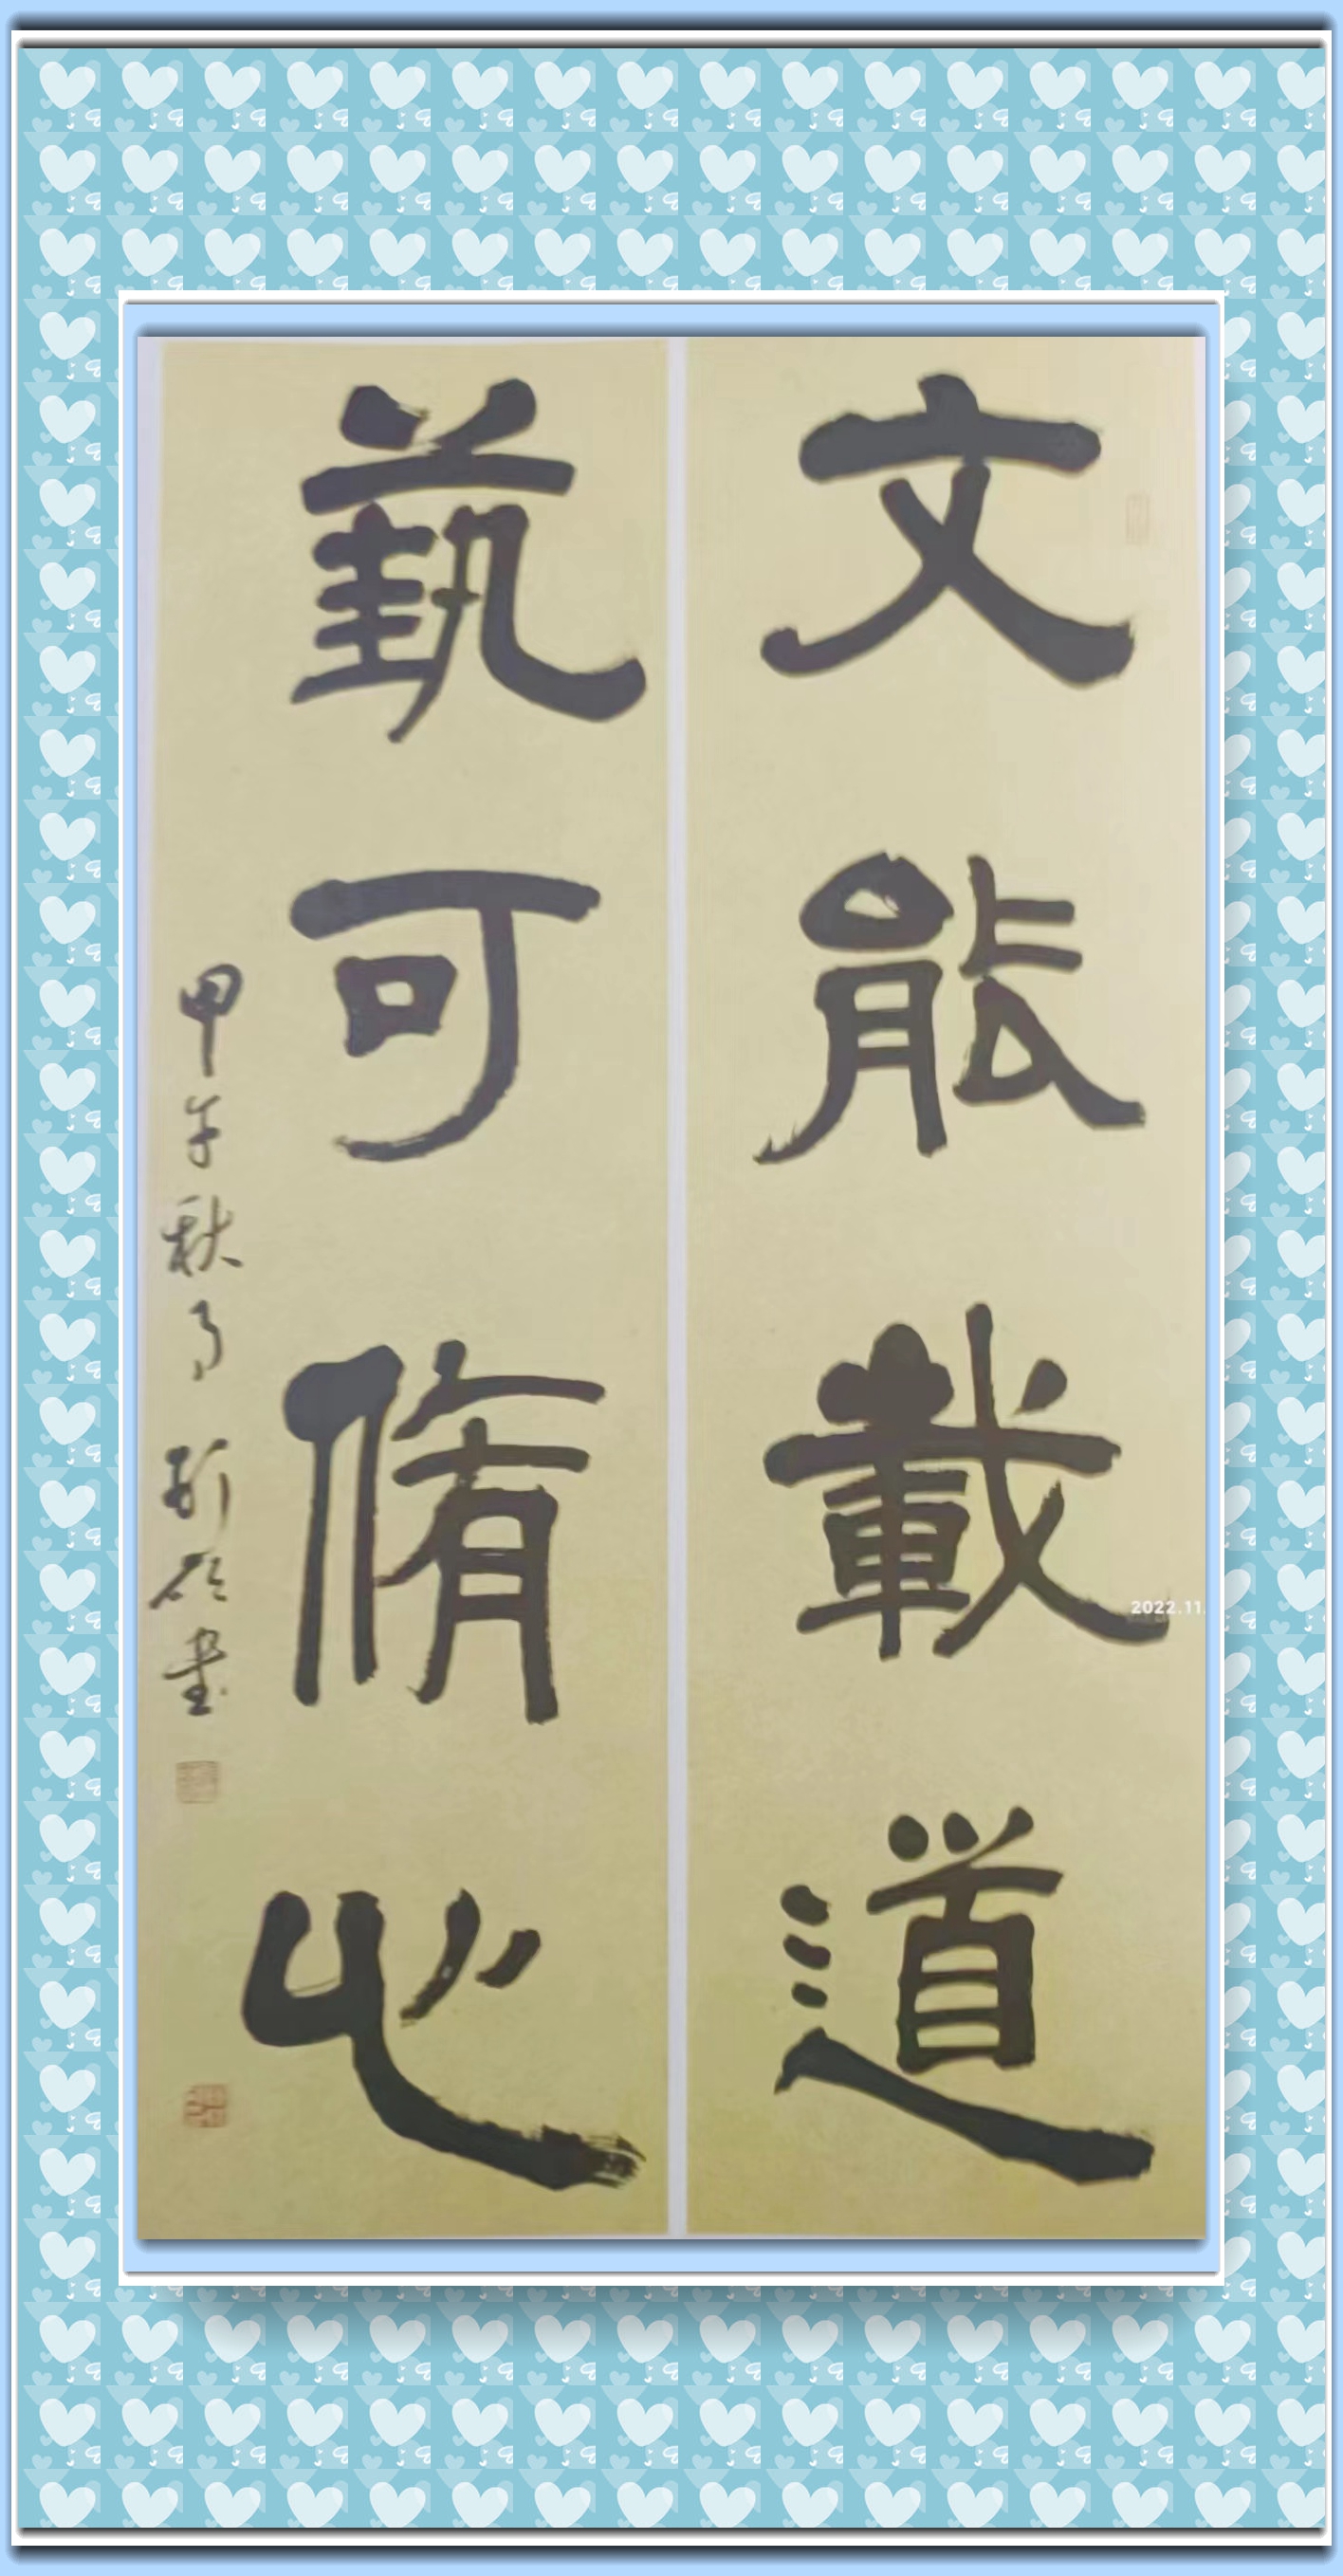 文能載道
藝可脩心
甲午秋月 書
2022.11